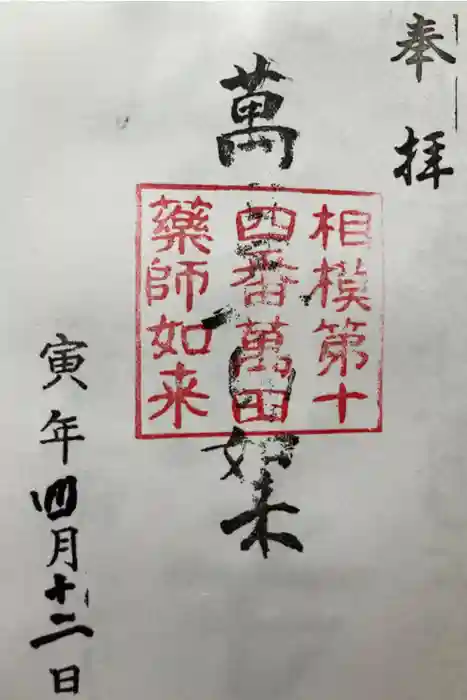 奉拝
萬
如来
相模第十
四番萬田
薬師如来
寅年四月十二日